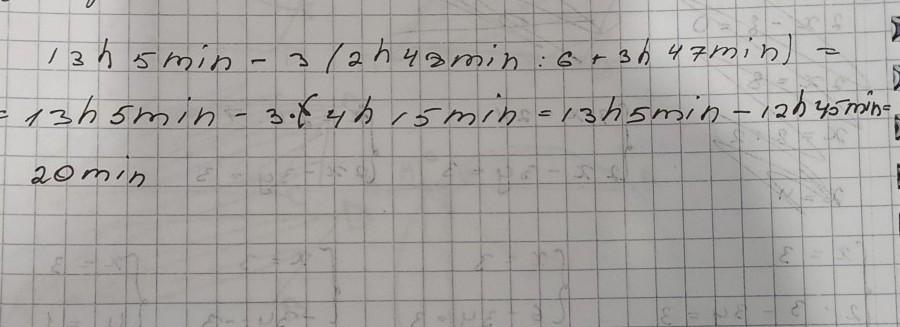 13h 5min - 3 (2h 48min : 6 + 3h 47min) =
= 13h 5min - 3 · 4h 15min = 13h 5min - 12h 45min =
20min